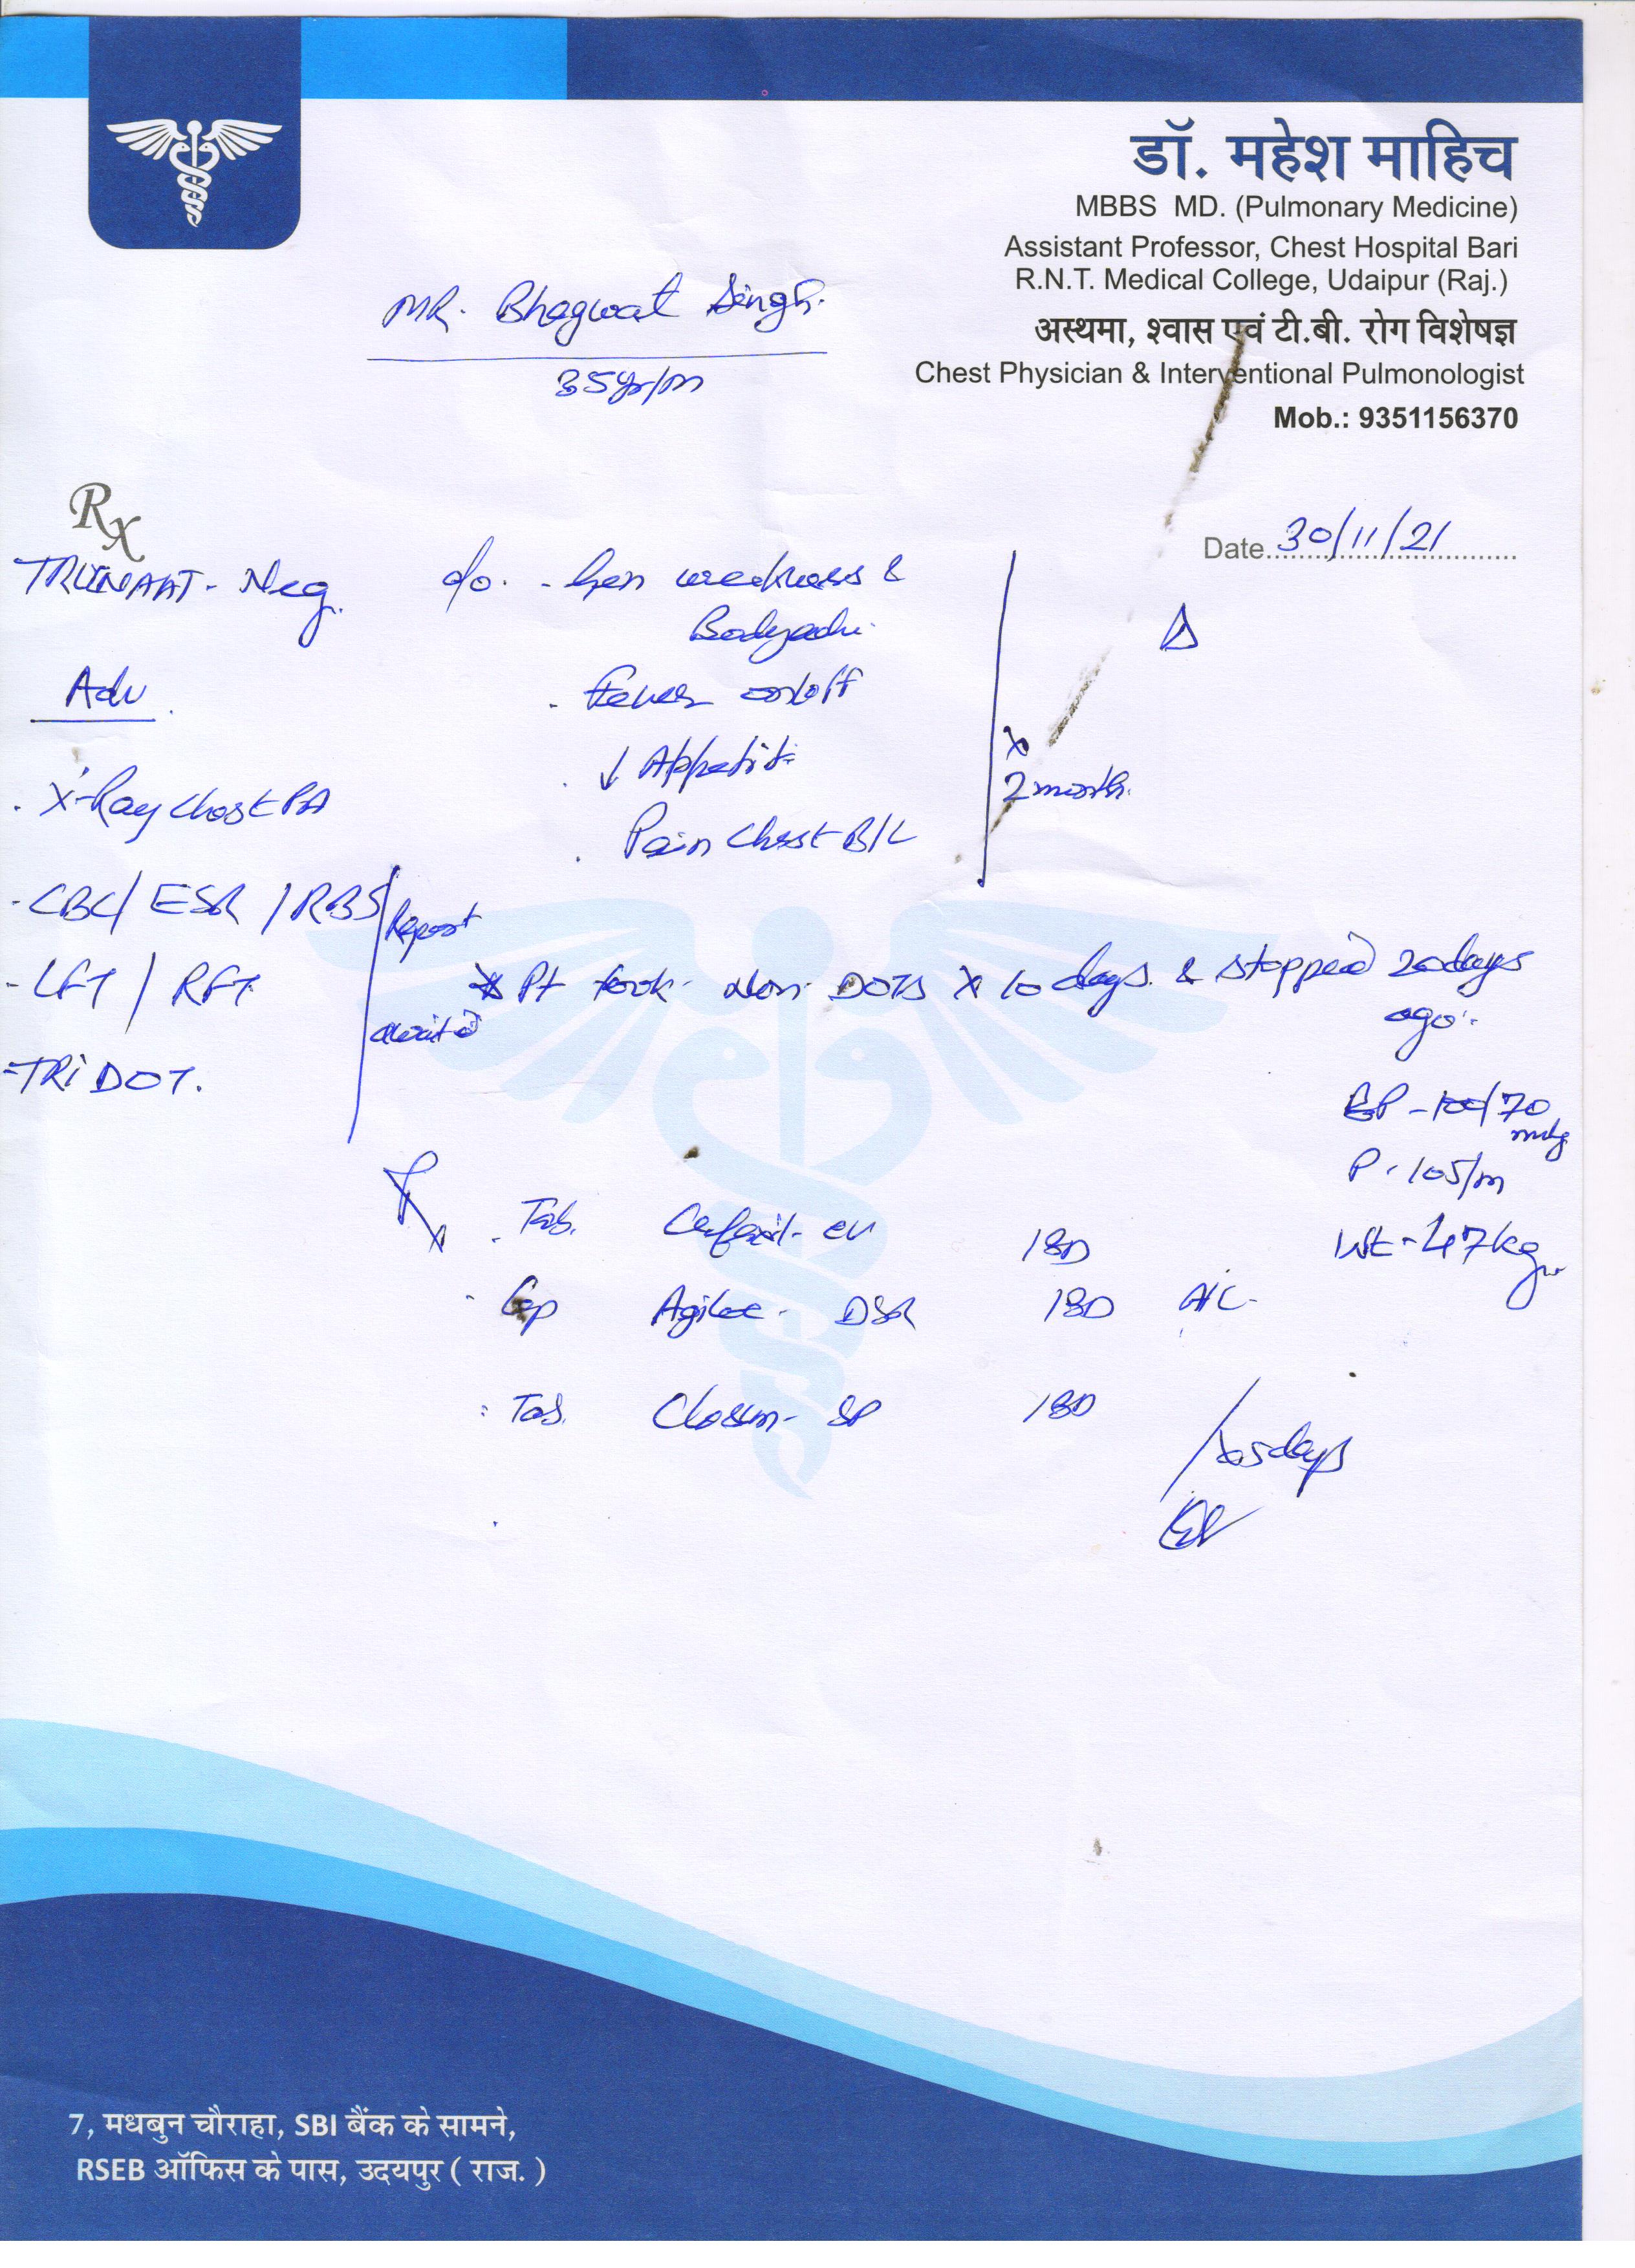 डॉ. महेश माहिच
MBBS MD. (Pulmonary Medicine)
Assistant Professor, Chest Hospital Bari
R.N.T. Medical College, Udaipur (Raj.)
अस्थमा, श्वास एवं टी.बी. रोग विशेषज्ञ
Chest Physician & Interventional Pulmonologist
Mob.: 9351156370
MR. Bhagwat Singh.
35yr/m
Rx
Date 30/11/21
TRUNAAT - Neg.
Adv
. X-Ray Chest PA
- CBC/ ESR / RBS
- LFT / RFT
- TRIDOT.
Report
awaited
c/o. - Gen weakness &
Bodyache
. Fever on/off
. ↓ Appetite
. Pain Chest B/L
x
2 month.
* Pt took Non DOTS x 10 days & stopped 20days
ago
BP - 100/70
mmHg
P - 105/m
Wt - 47kg
Rx
. Tab. CV 1BD
- Cap DSR 1BD A/C
: Tab. SP 1BD
x5days
7, मधबुन चौराहा, SBI बैंक के सामने,
RSEB ऑफिस के पास, उदयपुर ( राज. )